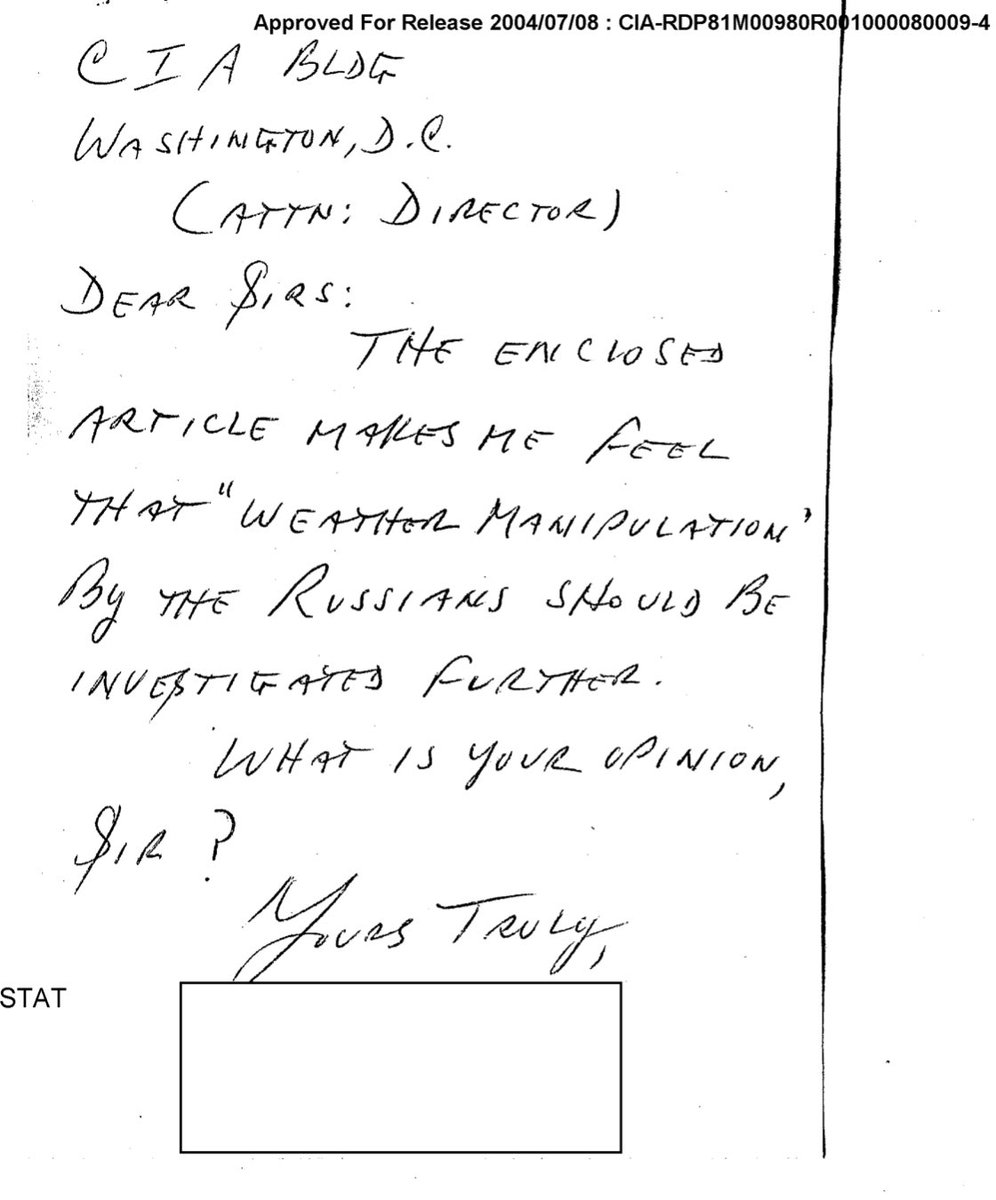 Approved For Release 2004/07/08 : CIA-RDP81M00980R001000080009-4
CIA BLDG
WASHINGTON, D.C.
(ATTN: DIRECTOR)
DEAR SIRS:
THE ENCLOSED
ARTICLE MAKES ME FEEL
THAT "WEATHER MANIPULATION"
By THE RUSSIANS SHOULD BE
INVESTIGATED FURTHER.
WHAT IS YOUR OPINION,
SIR?
YOURS TRULY,
STAT